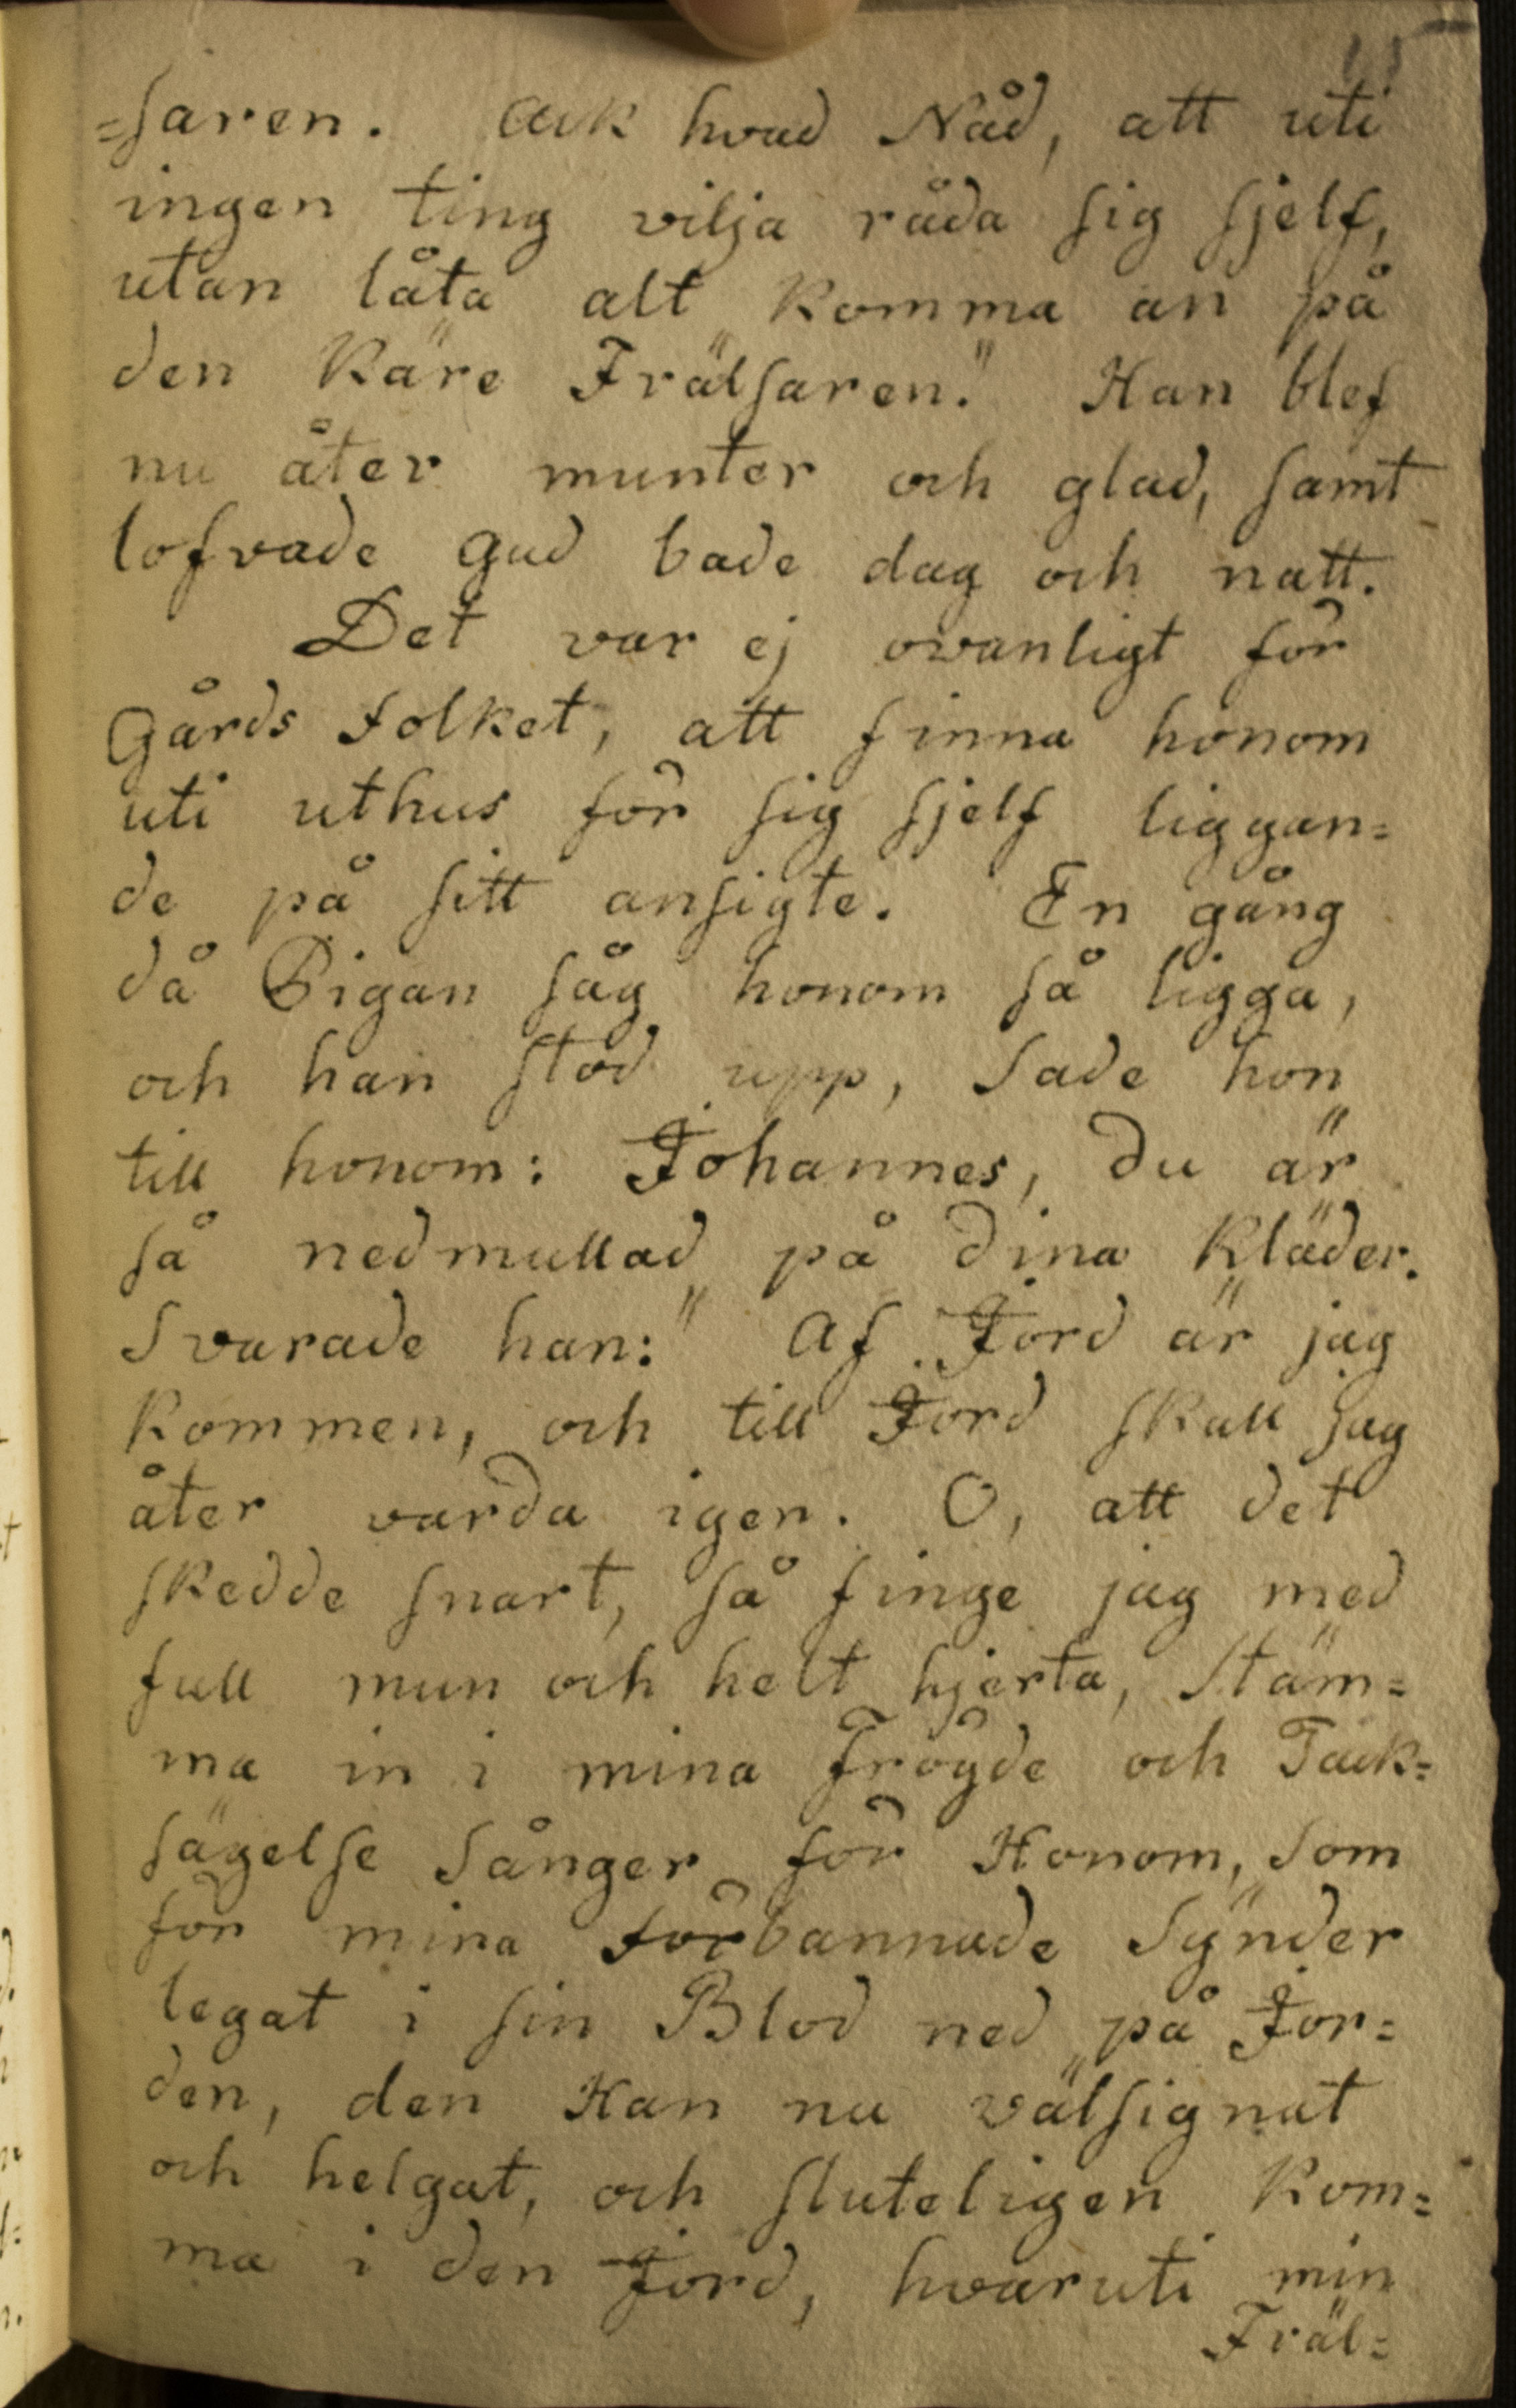 =saren. Ack hvad Nåd, att uti
ingen ting vilja råda sig sjelf,
utan låta alt komma an på
den Käre Frälsaren." Han blef
nu åter munter och glad, samt
lofvade Gud bade dag och natt.
Det var ej ovanligt för
Gårds folket, att finna honom
uti uthus för sig sjelf liggan=
de på sitt ansigte. En gång
då Pigan såg honom så ligga,
och han stod upp, sade hon
till honom: Johannes, du är
så nedmullad på dina Kläder.
Svarade han: "Af Jord är jag
Kommen, och till Jord skall jag
åter varda igen. O, att det
skedde snart, så finge jag med
full mun och helt hjerta, stäm=
ma in i mina Frögde och Tack=
sägelse Sånger för Honom, som
för mina förbannade Synder
legat i sin Blod ned på Jor=
den, den Han nu välsignat
och helgat, och sluteligen Kom=
ma i den Jord, hvaruti min
Fräl=